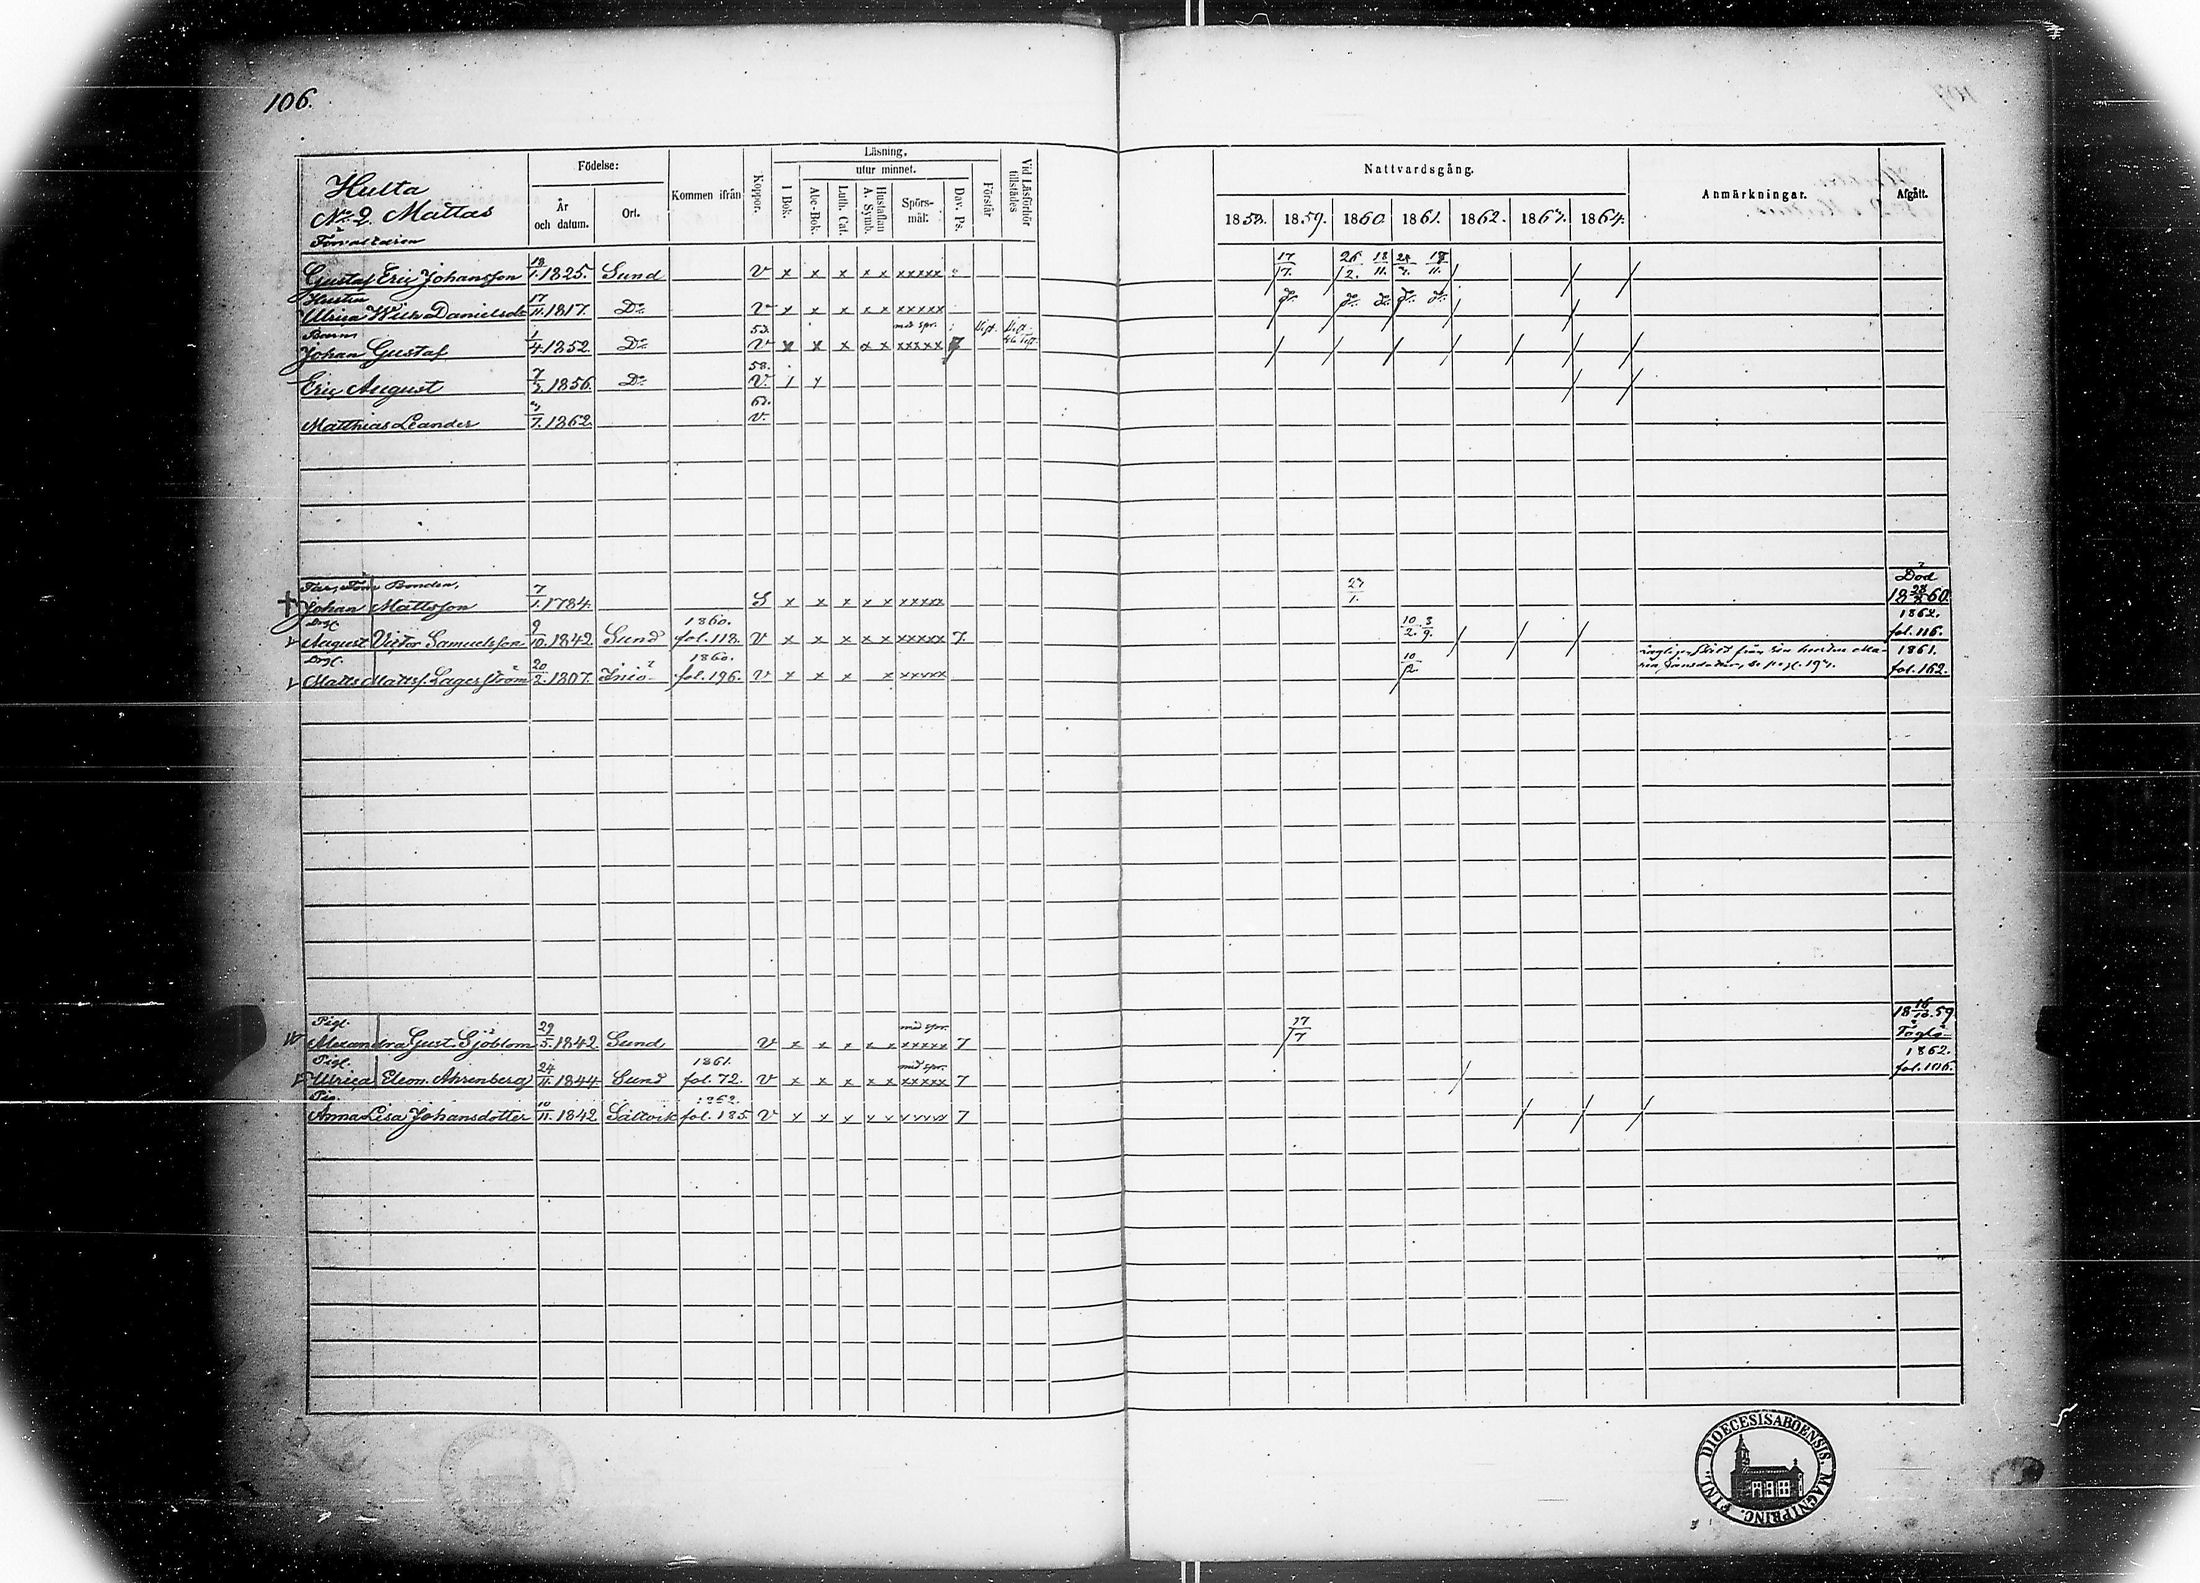 106.
Hulta
No 2 Mattas
Födelse:
År och datum.
Ort.
Kommen ifrån
Koppor.
Läsning.
utur minnet.
I Bok.
Abc-Bok.
Luth. Cat.
Hustaflan A. Symb.
Spörsmål:
Dav. Ps.
Förstår
Vid Läsförhör tillstädes
Nattvardsgång.
1858. 1859. 1860 1861. 1862. 1863. 1864.
Anmärkningar.
Afgått.
Gustaf Eric Johansson 18/1. 1825. Sund V x x x x x xxxxx 17/7. 26/2. 18/11. 18/11.
Hustru
Ulrica Wilh. Danielsdr 17/11. 1817. Do V x x x x x xxxxx
Barn
Johan Gustaf 1/4. 1852. Do V x x x x x xxxxx 7
Eric August 7/2. 1856. Do V.
Matthias Leander 7. 1862. V.
Bonden,
Johan Mattsson 7/1. 1784. S x x x x x xxxxx Död 1860.
August Victor Samuelsson 9/10. 1842. Sund 1860. fol. 118. V x x x x x xxxxx 7. 10/2. 3/9. 1862. fol. 116.
Matts Mattss. Lagerström 20/2. 1807. Iniö 1860. fol. 196. V x x x x xxxxx 10/2 1861. fol. 162.
Pig.
Alexandra Gust. Sjöblom 29/5. 1842. Sund V x x x x x med spr. xxxxx 7 17/7 18 16/10. 59 Töglö
Pig.
Ulrica Eleon. Ahrenberg 24/11. 1844. Sund 1861. fol. 72. V x x x x x med spr. xxxxx 7 1862. fol. 106.
Pig.
Anna Lisa Johansdotter 10/11. 1842 Saltvik 1862. fol. 185. V x x x x x xxxxx 7
DIOECESIS ABOENSIS. MAGNI PRINC. FINL.